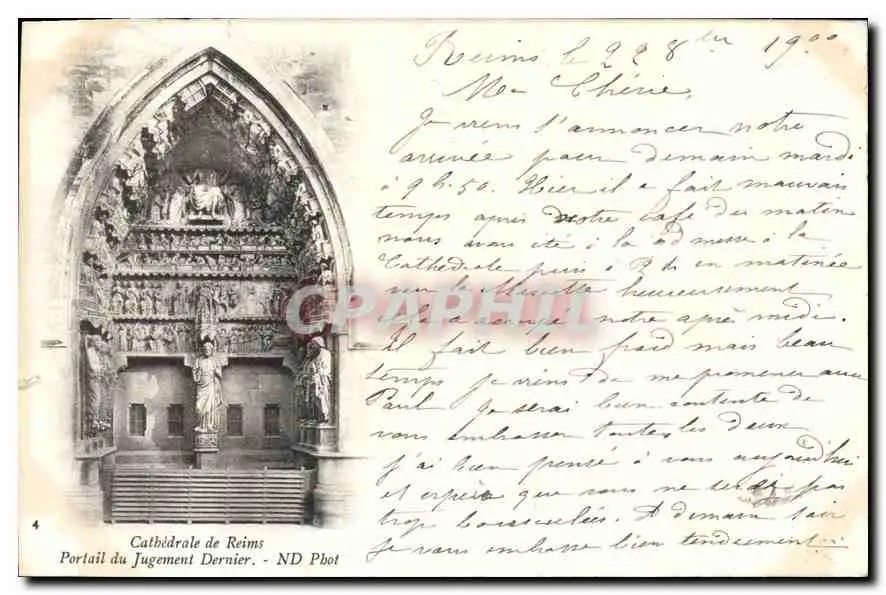 Reims le 22 8bre 1900
Ma Chérie,
Je viens t'annoncer notre
arrivée pour demain mardi
à 9 h. 50. Hier il a fait mauvais
temps après notre café du matin
nous avons été à la messe à la
Cathédrale puis à en matinée
voir la Mascotte heureusement
cela a notre après midi.
Il fait bien froid mais beau
temps je viens de me promener avec
Paul je serai bien contente de
vous embrasser toutes les deux
j'ai bien pensé à vous aujourd'hui
et espère que vous ne serez pas
trop bousculées. A demain soir
je vous embrasse bien tendrement
CARTAPHIL
4
Cathédrale de Reims
Portail du Jugement Dernier. - ND Phot